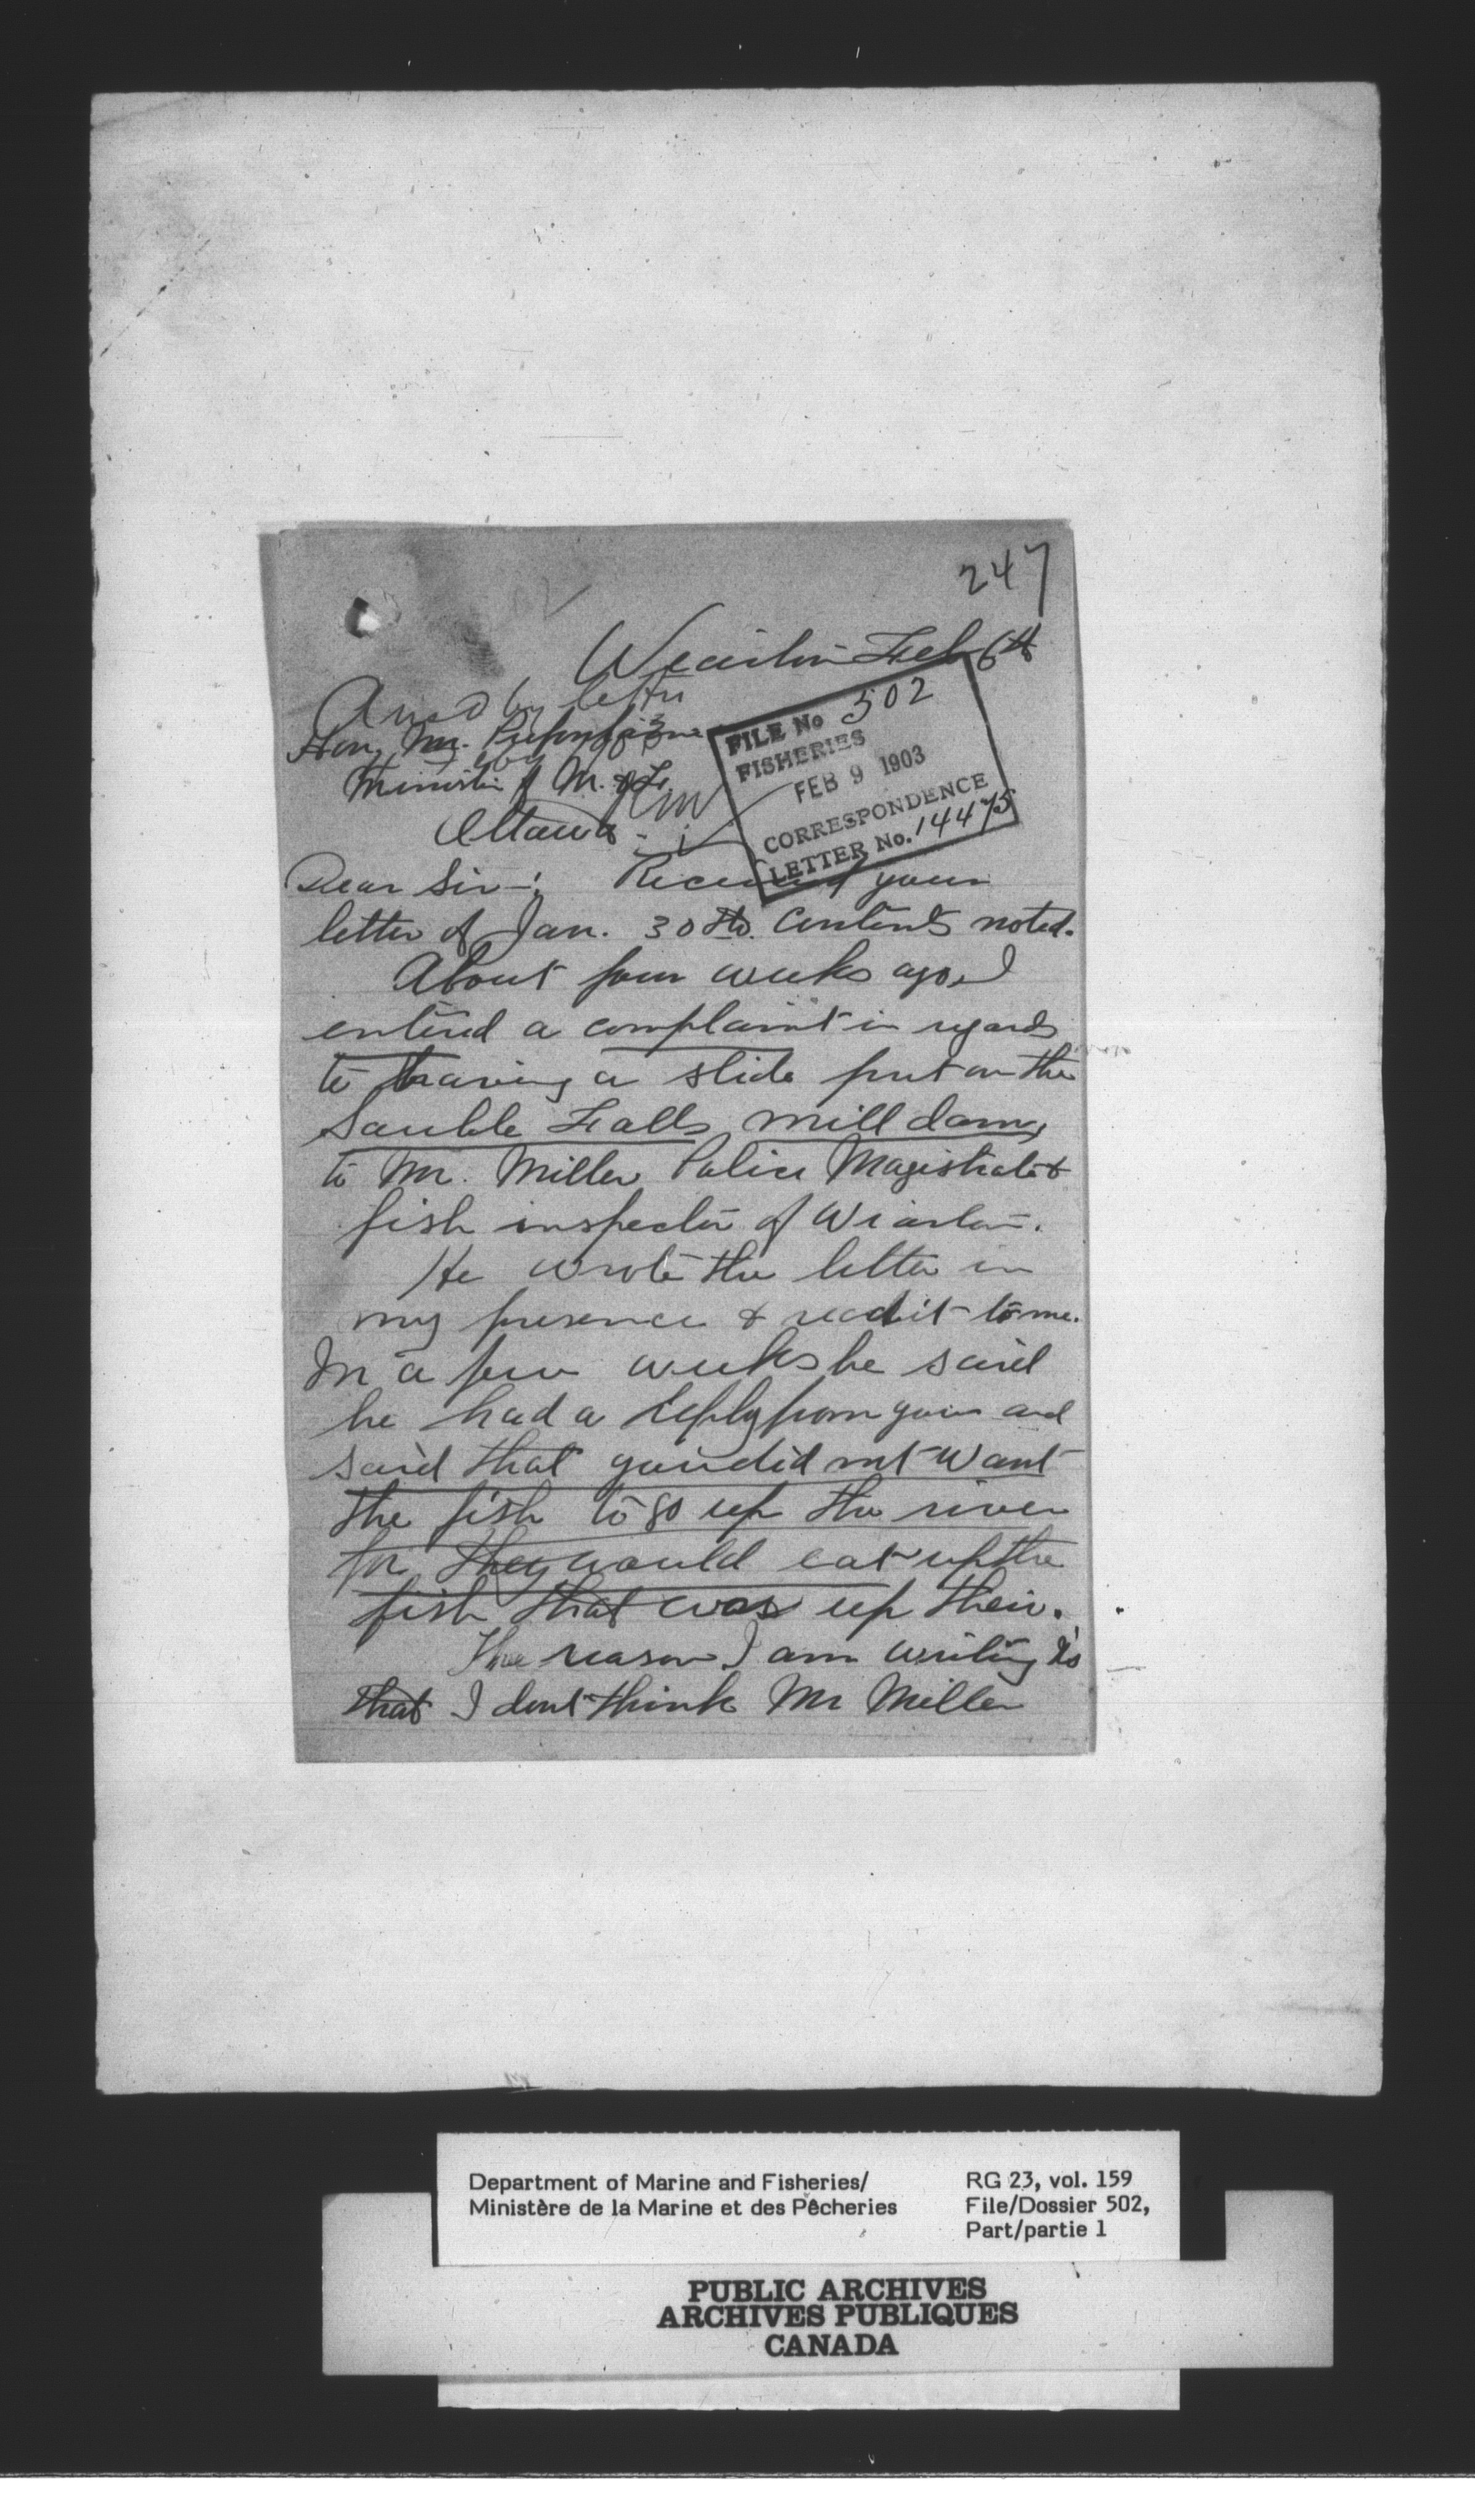 247
Wiarton Feb 6th
Ansd by letter
Hon. Mr. Prefontaine
Minister of M. & F.
Ottawa
FILE No 502
FISHERIES
FEB 9 1903
CORRESPONDENCE
LETTER No. 14475
Dear Sir-: Received your
letter of Jan. 30th. Contents noted.
About four weeks ago I
entered a complaint in regards
to having a slide put on the
Sauble Falls mill dam,
to Mr. Miller Police Magistrate &
fish inspector of Wiarton.
He wrote the letter in
my presence & read it to me.
In a few weeks he said
he had a reply from you and
said that you did not want
the fish to go up the river
for they would eat up the
fish that was up their.
The reason I am writing is
that I dont think Mr Miller
Department of Marine and Fisheries/
Ministère de la Marine et des Pêcheries
RG 23, vol. 159
File/Dossier 502,
Part/partie 1
PUBLIC ARCHIVES
ARCHIVES PUBLIQUES
CANADA